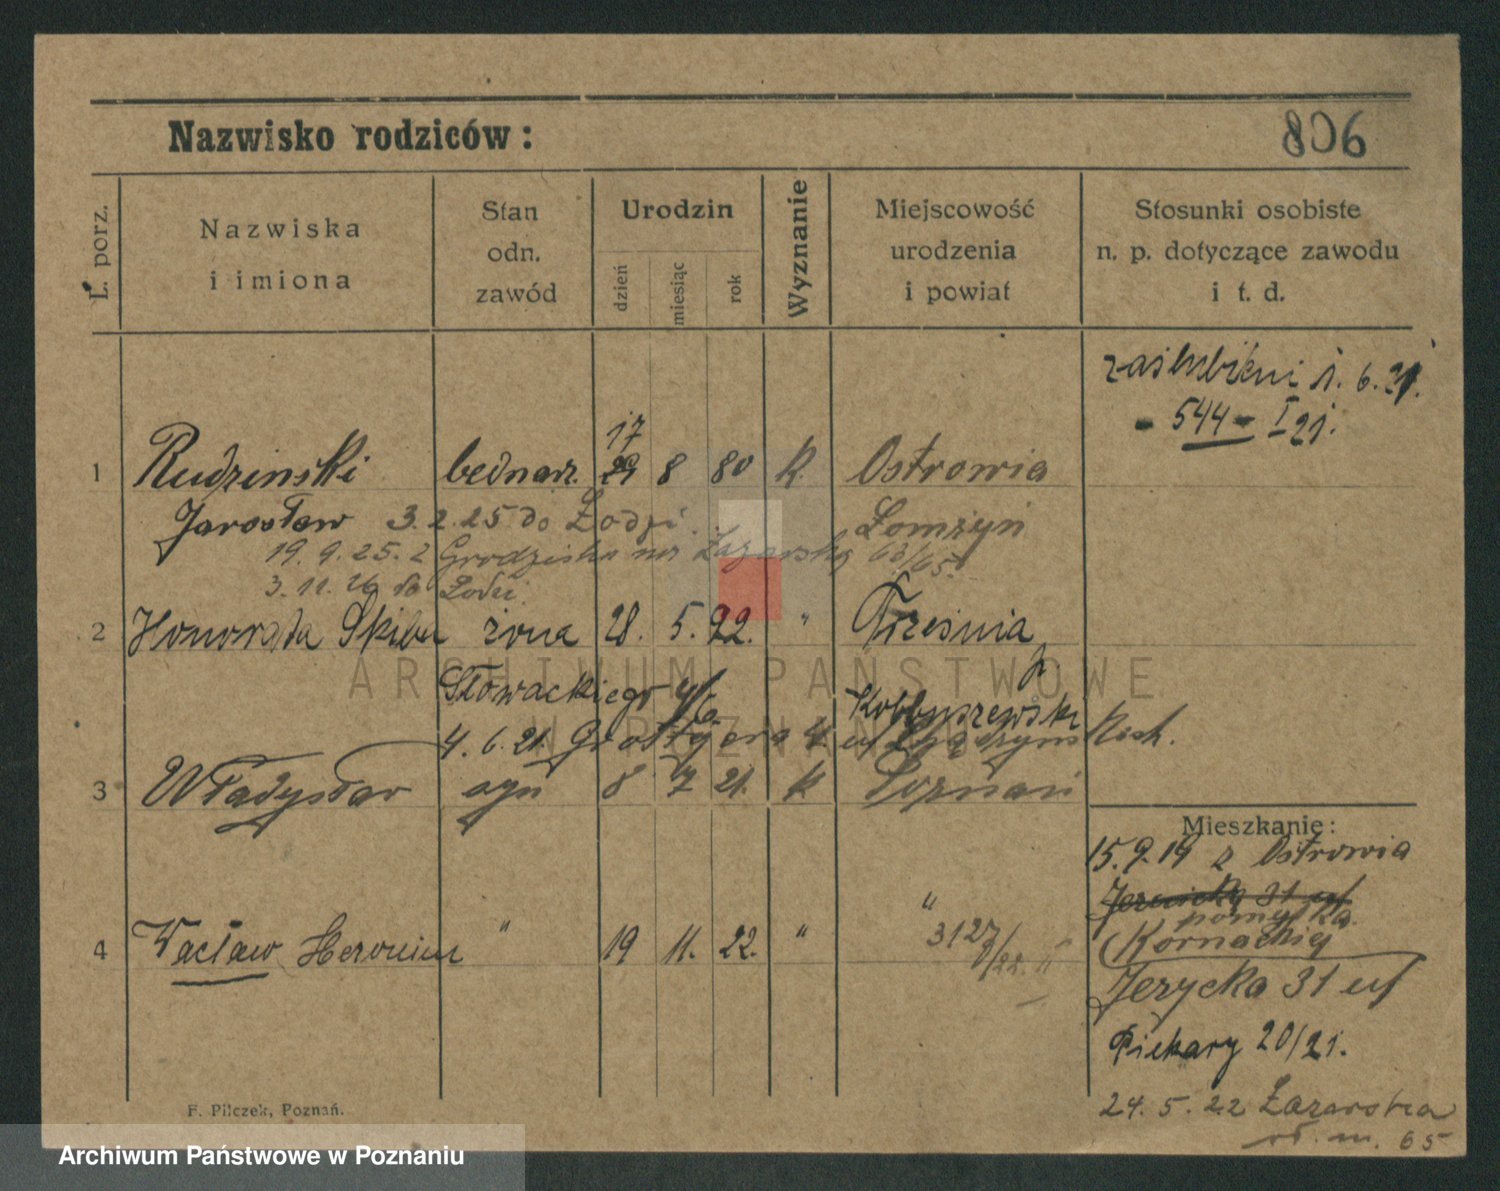 Nazwisko rodziców:
806
L. porz.
Nazwiska
i imiona
Stan
odn.
zawód
Urodzin
dzień
miesiąc
rok
Wyznanie
Miejscowość
urodzenia
i powiat
Stosunki osobiste
n. p. dotyczące zawodu
i t. d.
zaślubieni 1. 6. 21.
- 544 - I 21.
17
1 Rudzinski bednarz. 29 8 80 k. Ostrowia
Jarosław 3. 2. 25 do Łodzi Łomżyń
19. 9. 25. z Grodziska Łazarska 63/65.
3. 11. 26 do Łodzi.
2 Honorata Skiba żona 28. 5. 92. " Trześnia
Słowackiego
4. 6. 21.
3 Władysław syn 8 7 21. k Poznań
Mieszkanie:
15. 9. 19 z Ostrowia
pomyłka.
Kornackiej
Jerzycka 31
Piekary 20/21.
24. 5. 22 Łazarska
65
4 Wacław Heronim " 19 11. 22. " "
3127/22. "
F. Pilczek, Poznań.
ARCHIWUM PAŃSTWOWE
W POZNANIU
Archiwum Państwowe w Poznaniu